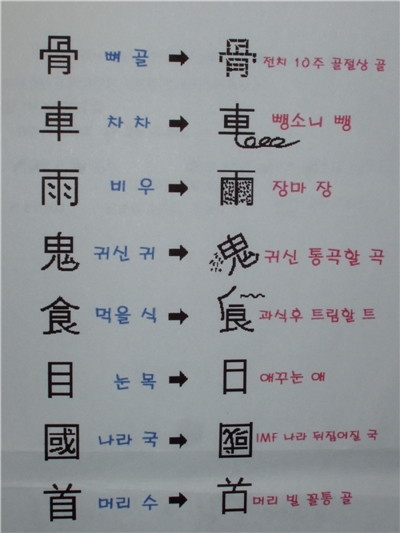 骨 뼈 골 ➡ 骨 전치 10주 골절상 골
車 차 차 ➡ 車 뺑소니 뺑
雨 비 우 ➡ 雨 장마 장
鬼 귀신 귀 ➡ 鬼 귀신 통곡할 곡
食 먹을 식 ➡ 과식후 트림할 트
目 눈 목 ➡ 日 애꾸눈 애
國 나라 국 ➡ 國 IMF 나라 뒤집어질 국
首 머리 수 ➡ 머리 빌 꼴통 골